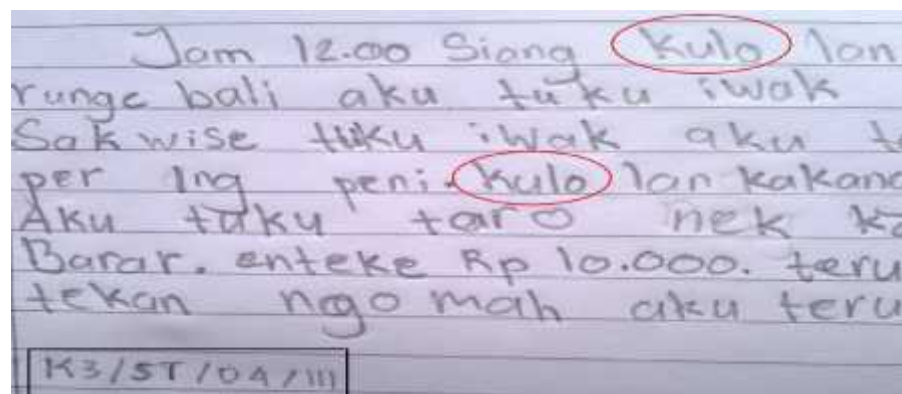 Jam 12.00 Siang kulo lan
runge bali aku tuku iwak
Sakwise tuku iwak aku
per Ing peni. kulo lan kakang
Aku tuku taro nek
Barar. enteke Rp 10.000. teru
tekan ngo mah aku teru
K3/ST/04/III